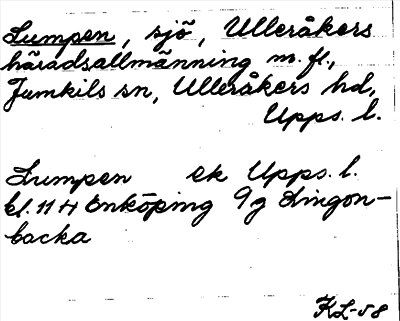 Lumpen, sjö, Ulleråkers
häradsallmänning m. fl.,
Jumkils sn, Ulleråkers hd,
Upps. l.
Lumpen ek Upps. l.
bl. 11 H Enköping 9g Lingon-
backa
KL-58